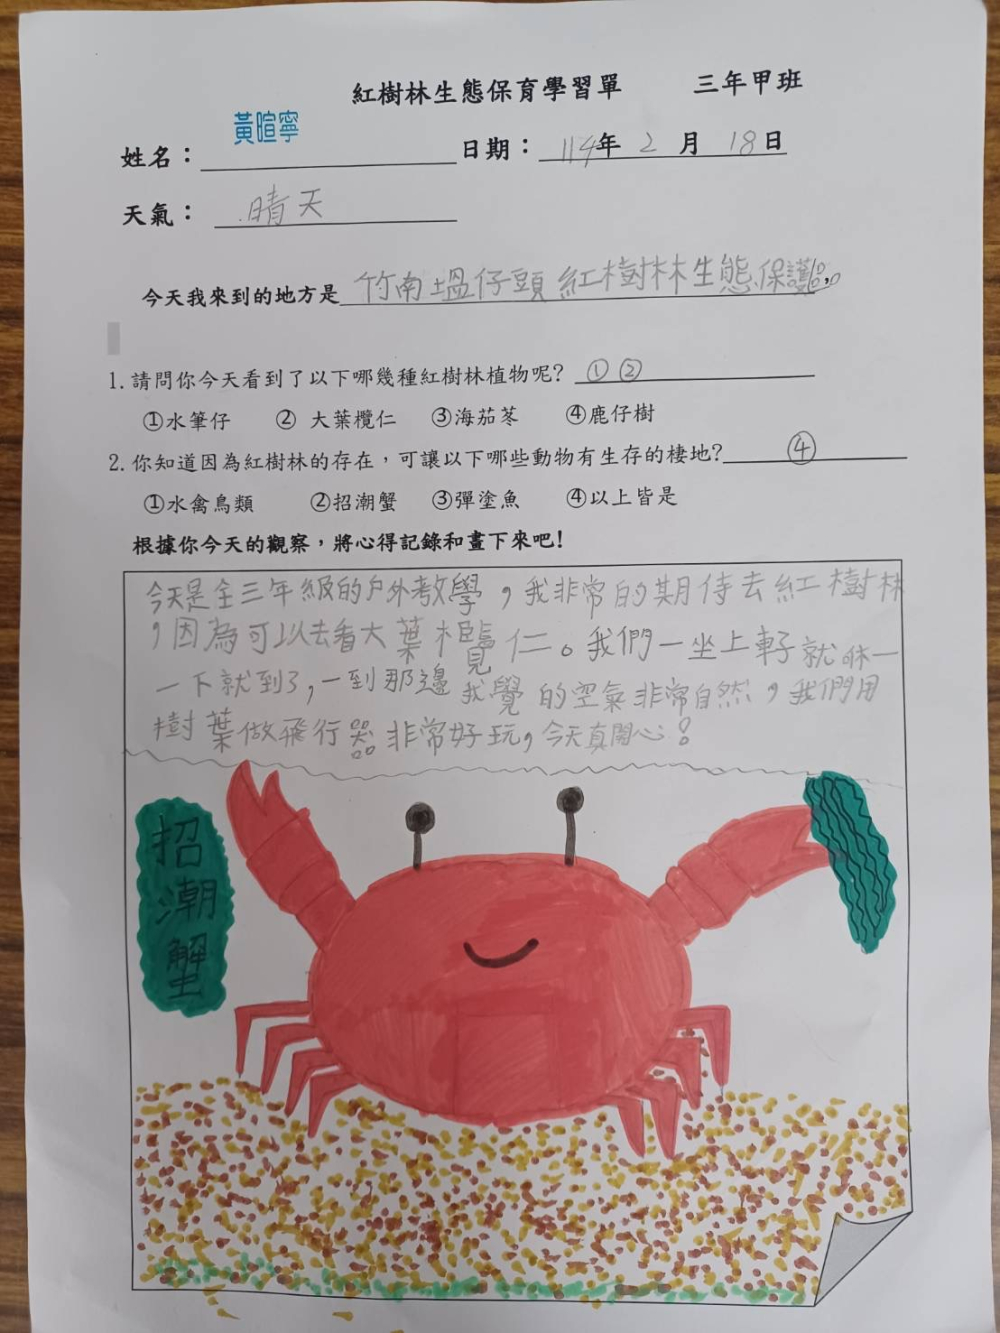 紅樹林生態保育學習單 三年甲班
姓名： 黃暄寧 日期： 114年 2 月 18日
天氣： 晴天
今天我來到的地方是 竹南塭仔頭紅樹林生態保護區。
1. 請問你今天看到了以下哪幾種紅樹林植物呢? ①②
①水筆仔 ② 大葉欖仁 ③海茄苳 ④鹿仔樹
2. 你知道因為紅樹林的存在，可讓以下哪些動物有生存的棲地? ④
①水禽鳥類 ②招潮蟹 ③彈塗魚 ④以上皆是
根據你今天的觀察，將心得記錄和畫下來吧!
今天是全三年級的戶外教學，我非常的期待去紅樹林
，因為可以去看大葉欖仁。我們一坐上車子就咻一
一下就到了，一到那邊我覺的空氣非常自然，我們用
樹葉做飛行器非常好玩，今天真開心！
招潮蟹